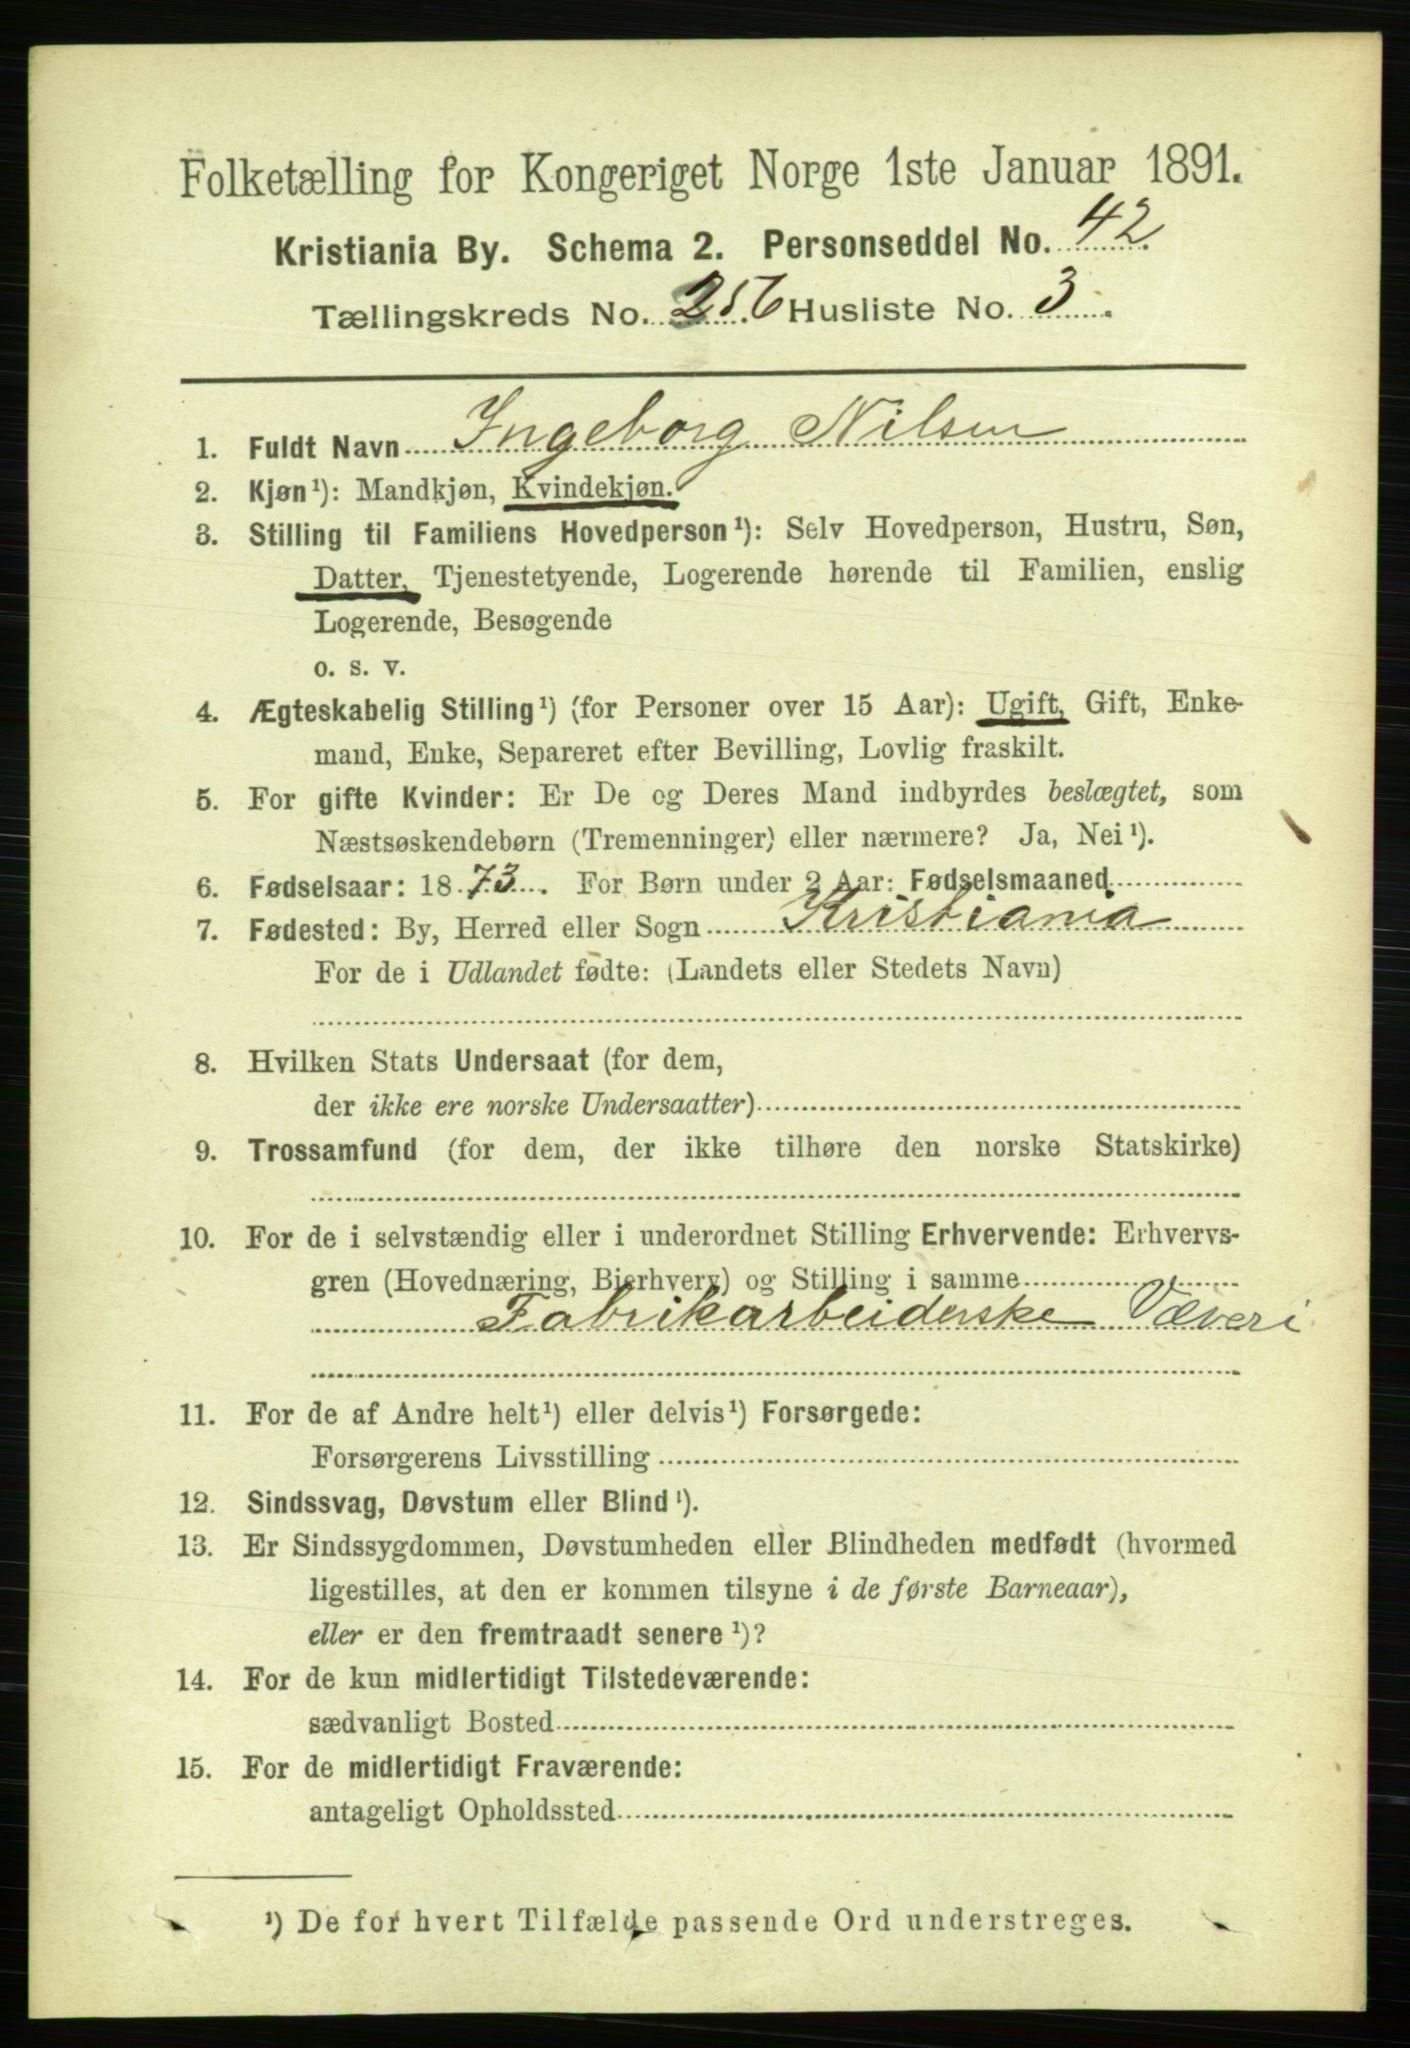 Folketælling for Kongeriget Norge 1ste Januar 1891.
Kristiania By. Schema 2. Personseddel No. 42.
Tællingskreds No. 256 Husliste No. 3.
1. Fuldt Navn Ingeborg Nilsen
2. Kjøn¹): Mandkjøn, Kvindekjøn.
3. Stilling til Familiens Hovedperson¹): Selv Hovedperson, Hustru, Søn,
Datter, Tjenestetyende, Logerende hørende til Familien, enslig
Logerende, Besøgende
o. s. v.
4. Ægteskabelig Stilling¹) (for Personer over 15 Aar): Ugift, Gift, Enke-
mand, Enke, Separeret efter Bevilling, Lovlig fraskilt.
5. For gifte Kvinder: Er De og Deres Mand indbyrdes beslægtet, som
Næstsøskendebørn (Tremenninger) eller nærmere? Ja, Nei¹).
6. Fødselsaar: 1873. For Børn under 2 Aar: Fødselsmaaned
7. Fødested: By, Herred eller Sogn Kristiania
For de i Udlandet fødte: (Landets eller Stedets Navn)
8. Hvilken Stats Undersaat (for dem,
der ikke ere norske Undersaatter)
9. Trossamfund (for dem, der ikke tilhøre den norske Statskirke)
10. For de i selvstændig eller i underordnet Stilling Erhvervende: Erhvervs-
gren (Hovednæring, Bierhverv) og Stilling i samme
Fabrikarbeiderske Væveri
11. For de af Andre helt¹) eller delvis¹) Forsørgede:
Forsørgerens Livsstilling
12. Sindssvag, Døvstum eller Blind¹).
13. Er Sindssygdommen, Døvstumheden eller Blindheden medfødt (hvormed
ligestilles, at den er kommen tilsyne i de første Barneaar),
eller er den fremtraadt senere¹)?
14. For de kun midlertidigt Tilstedeværende:
sædvanligt Bosted
15. For de midlertidigt Fraværende:
antageligt Opholdssted
¹) De for hvert Tilfælde passende Ord understreges.